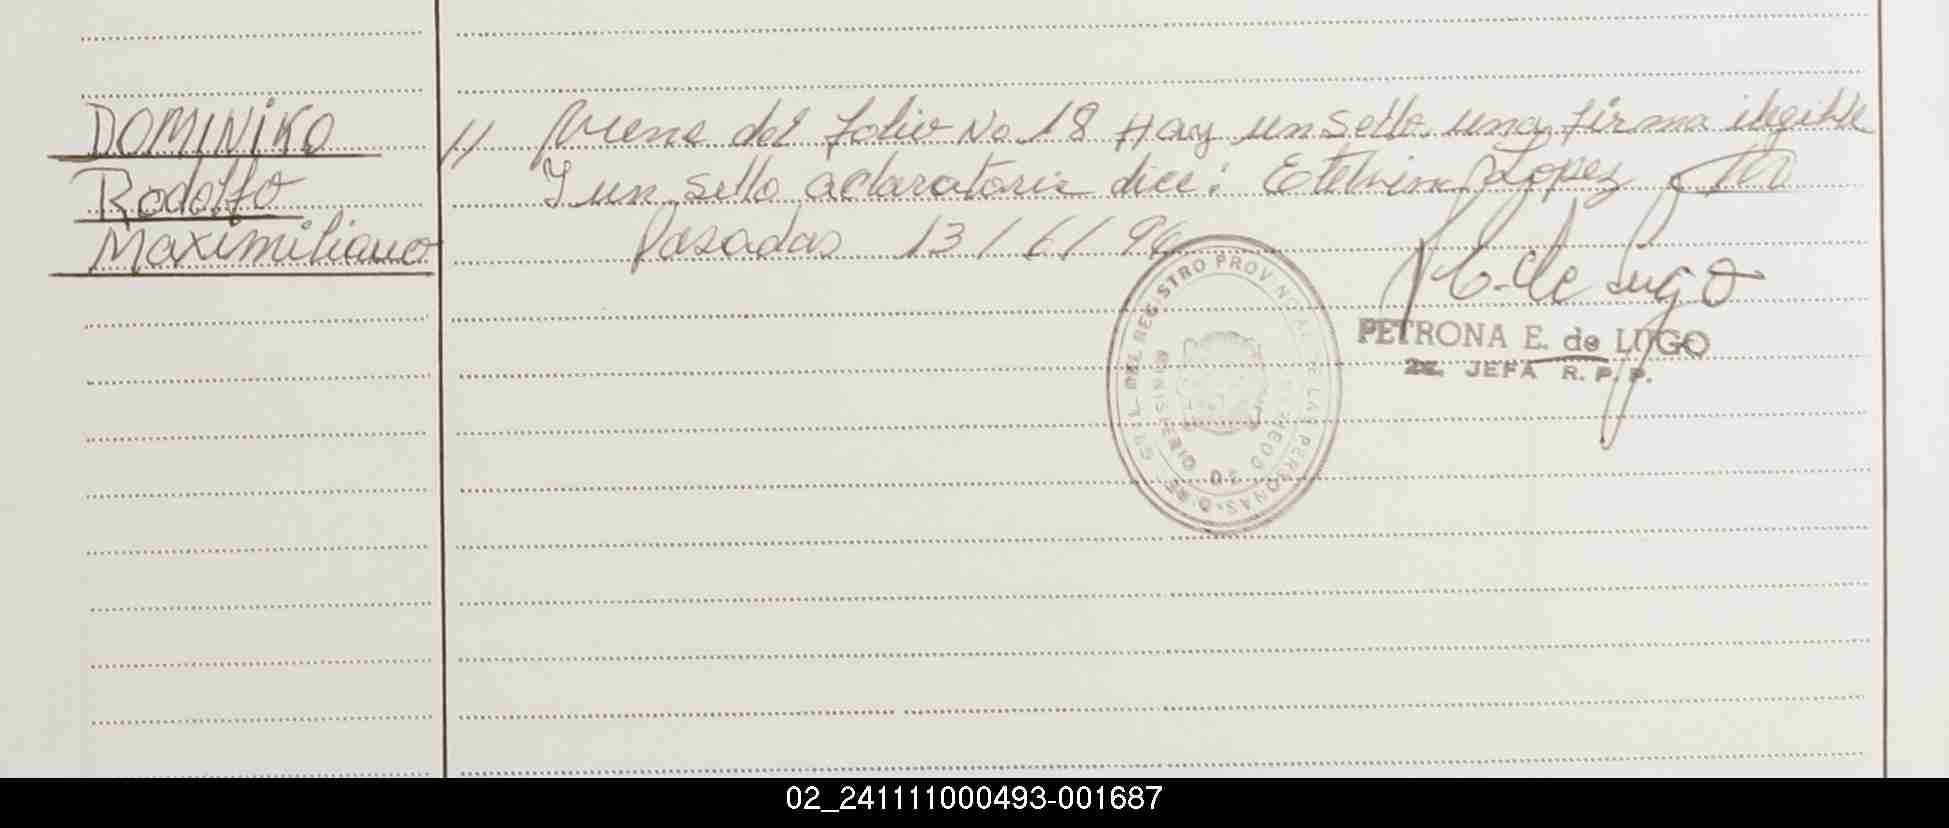 DOMINIKO
Rodolfo
Maximiliano
// Viene del folio No 18 Hay un sello una firma ilegible
Y un sello aclaratorio dice: Etelvina Lopez
Posadas 13/6/96
P. E. de Lugo
PETRONA E. de LUGO
JEFA R. P. P.
DEL REGISTRO PROVINCIAL DE LAS PERSONAS
02_241111000493-001687